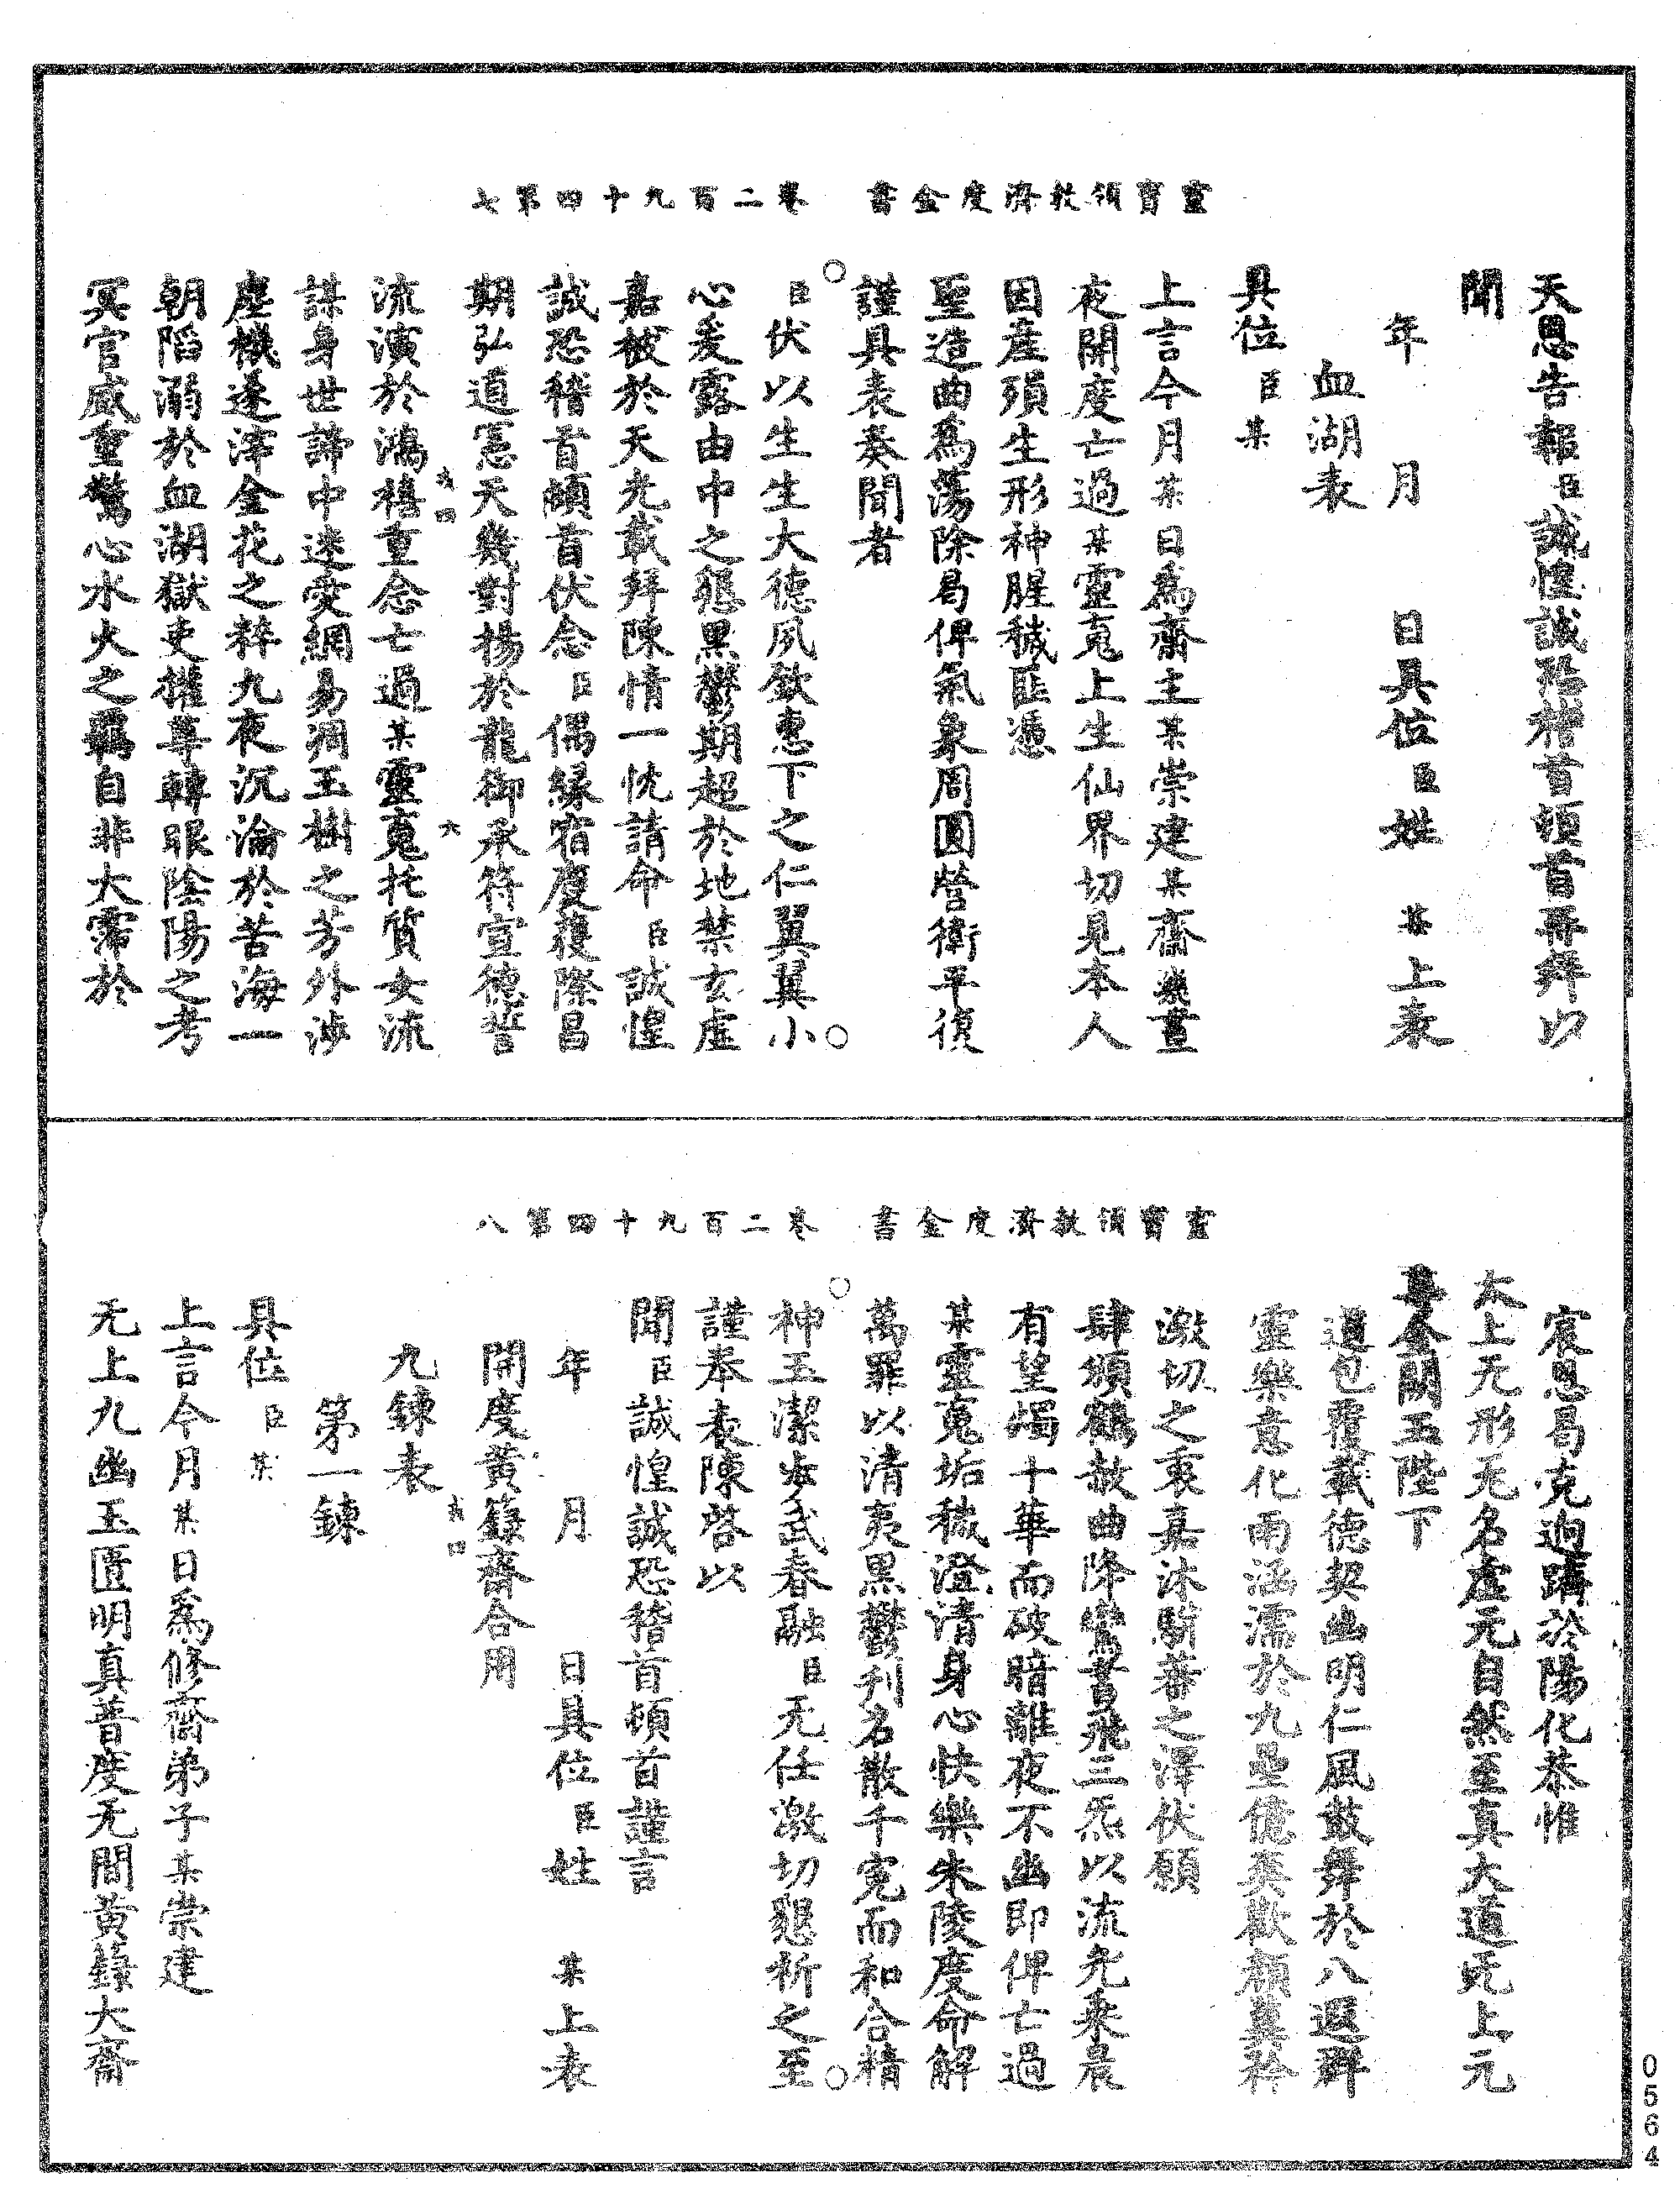 靈寶領教濟度金書　卷二百九十四第七
天恩告報臣誠惶誠恐稽首頓首再拜以
聞
年　月　日具位臣姓　某上表
血湖表
具位臣某
上言今月某日爲齋主某崇建某齋幾晝
夜開度亡過某靈蒐上生仙界切見本人
因產殞生形神腥穢匪憑
聖造曲爲蕩除曷俾氣象周圓營衛平復
謹具表奏聞者
臣伏以生生大德夙欽惠下之仁翼翼小
心爰露由中之懇黑鬱期超於地禁玄虛
嘉被於天光載拜陳情一忱請命臣誠惶
誠恐稽首頓首伏念臣偶緣宿慶獲際昌
期弘道憲天幾對揚於龍御承符宣德誓
流演於鴻禧重念亡過某靈蒐托質女流
謀身世諦中迷愛網易凋玉樹之芳外涉
塵機遂滓金花之粹九夜沉淪於苦海一
朝陷溺於血湖獄吏權尊轉眼陰陽之考
冥官威重驚心水火之羈自非大霈於
靈寶領教濟度金書　卷二百九十四第八
宸恩曷克迥躋於陽化恭惟
太上无形无名虛元自然至真大道旡上元
尊金闕玉陛下
道包覆載德契幽明仁風鼓舞於八遐群
靈樂意化雨涵濡於九壘億英歡顏冀矜
激切之衷嘉沐駢蕃之澤伏願
肆頒鶴赦曲降鸞書飛三炁以流光來晨
有望燭十華而破暗離夜不幽即俾亡過
某靈蒐垢穢澄清身心快樂朱陵度命解
萬罪以清夷黑鬱刊名散千寃而和合精
神玉潔步武春融臣无任激切懇祈之至
謹奉表陳啓以
聞臣誠惶誠恐稽首頓首謹言
年　月　日具位臣姓　某上表
開度黃籙齋合用
九鍊表
第一鍊
具位臣某
上言今月某日爲修齋弟子某崇建
无上九幽玉匱明真普度无間黃籙大齋
0564